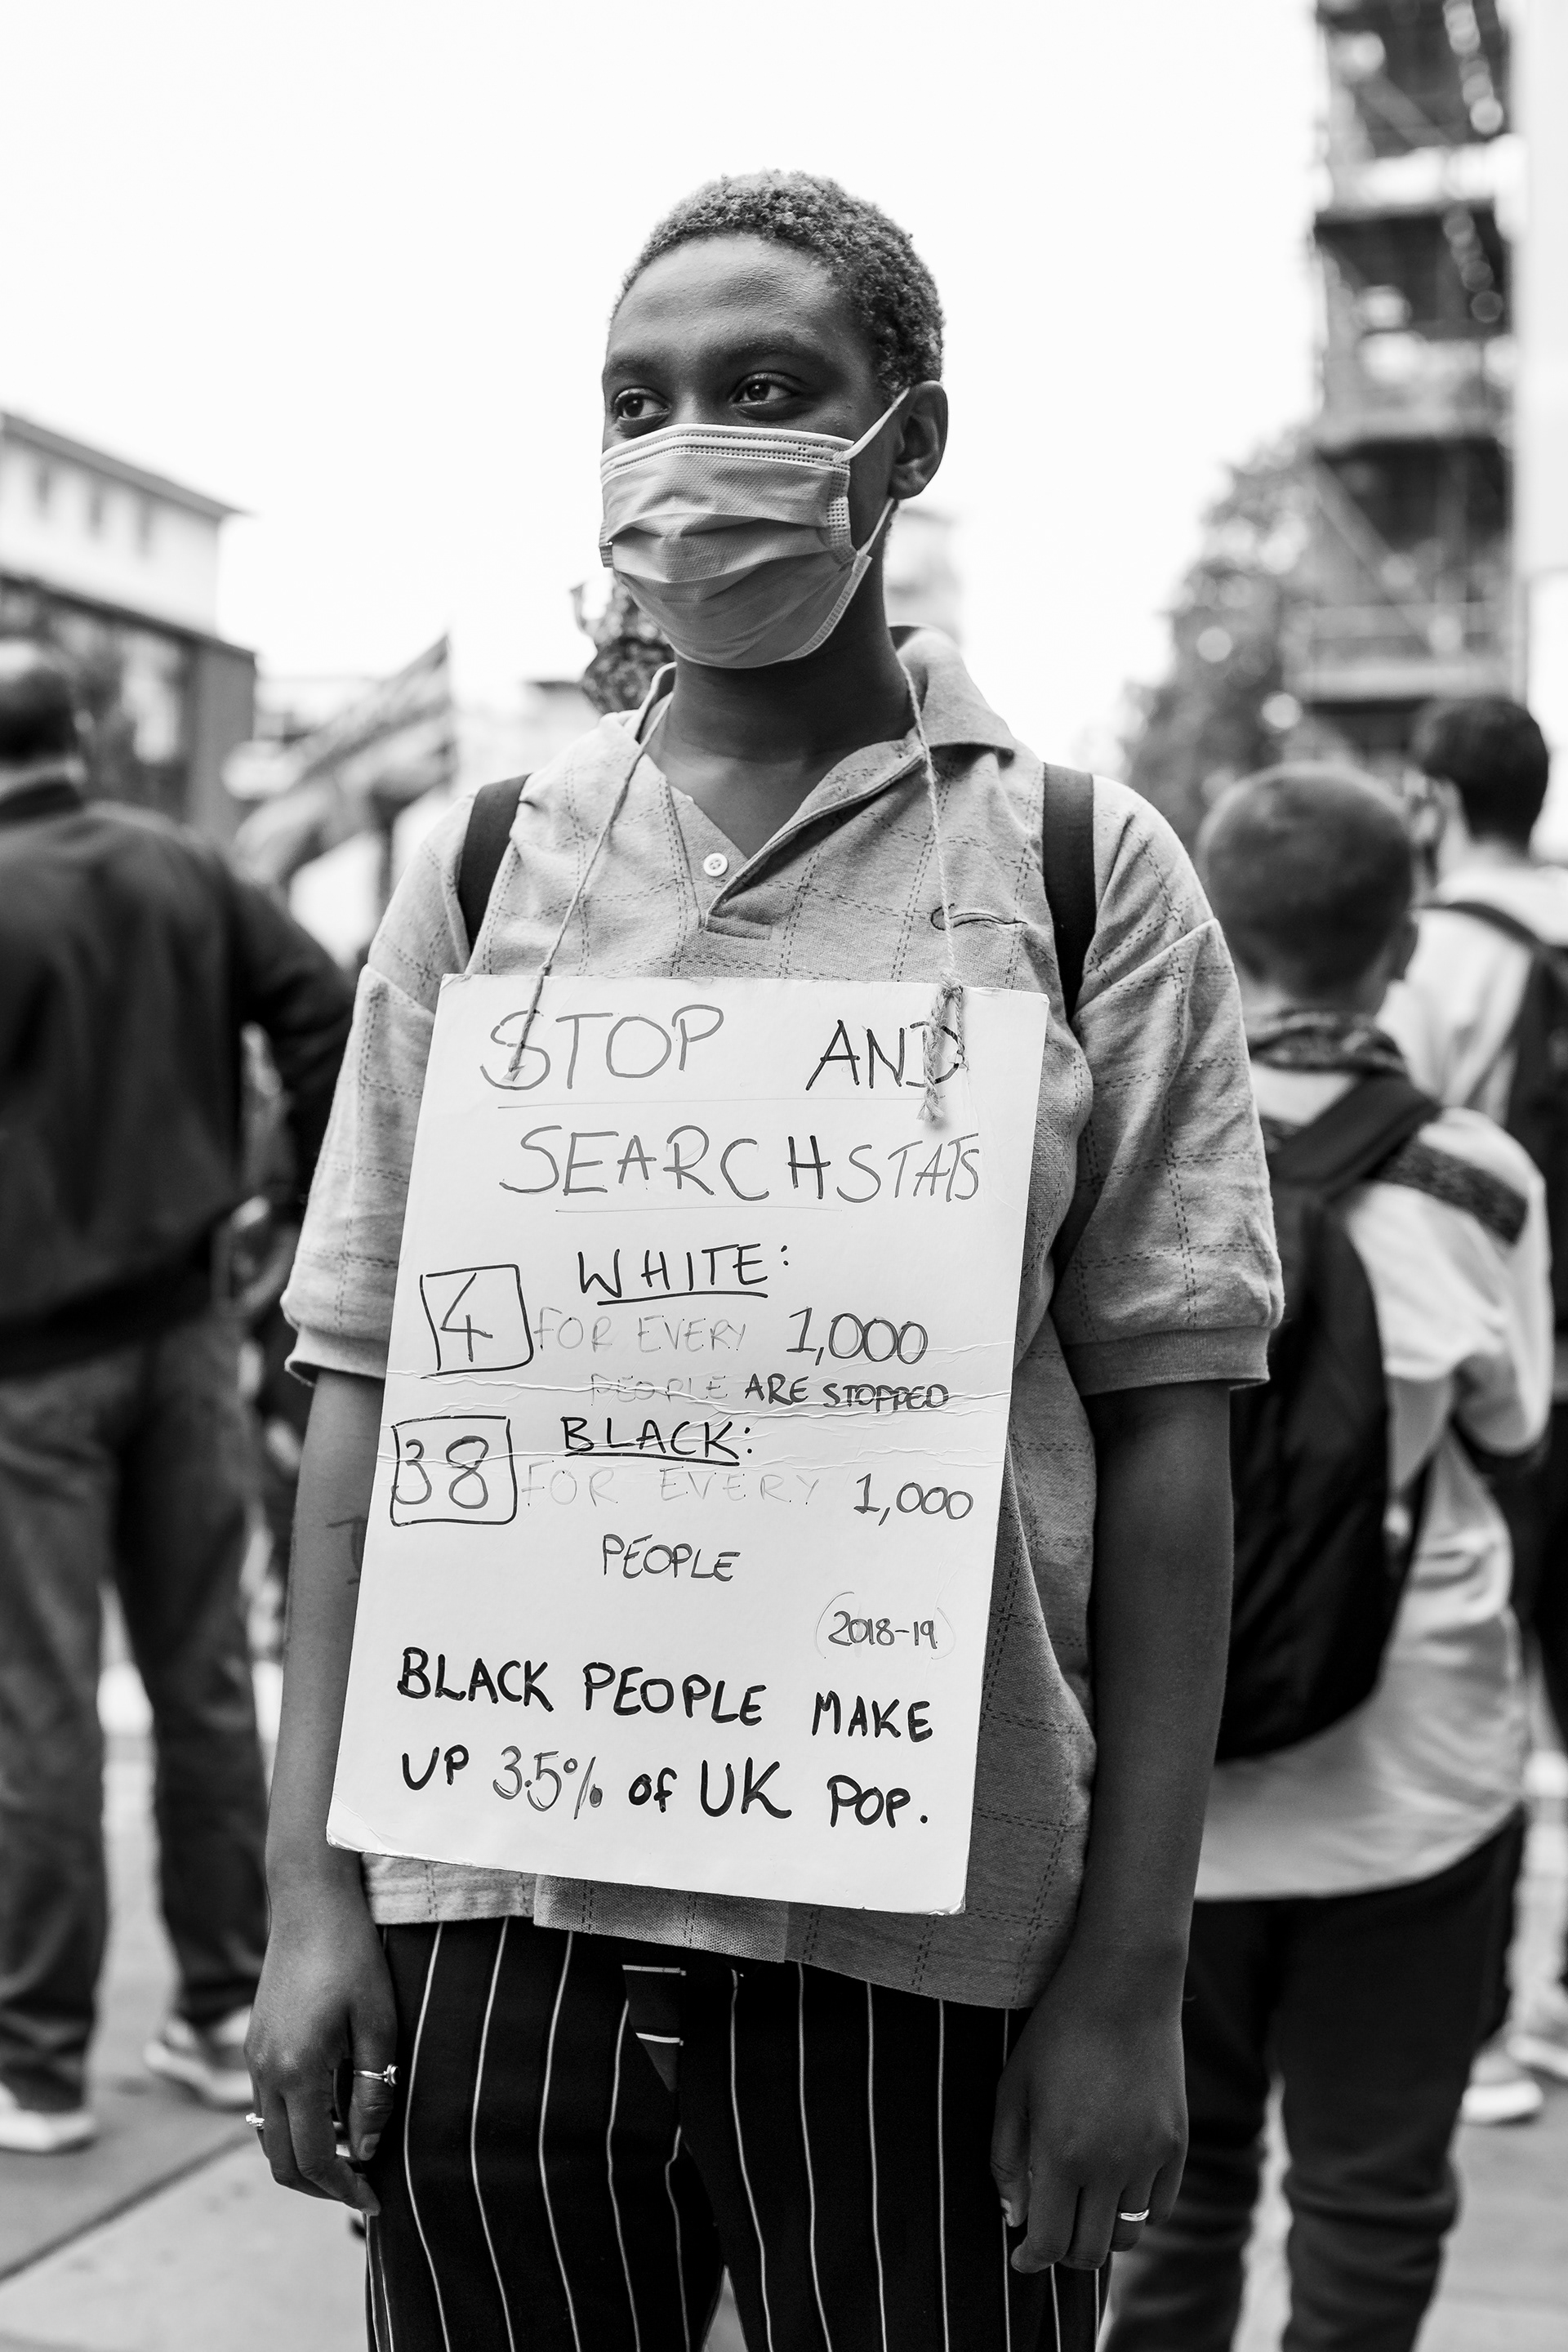 STOP AND
SEARCH STATS
WHITE:
4 FOR EVERY 1,000
PEOPLE ARE STOPPED
BLACK:
38 FOR EVERY 1,000
PEOPLE
(2018-19)
BLACK PEOPLE MAKE
UP 3.5% of UK POP.